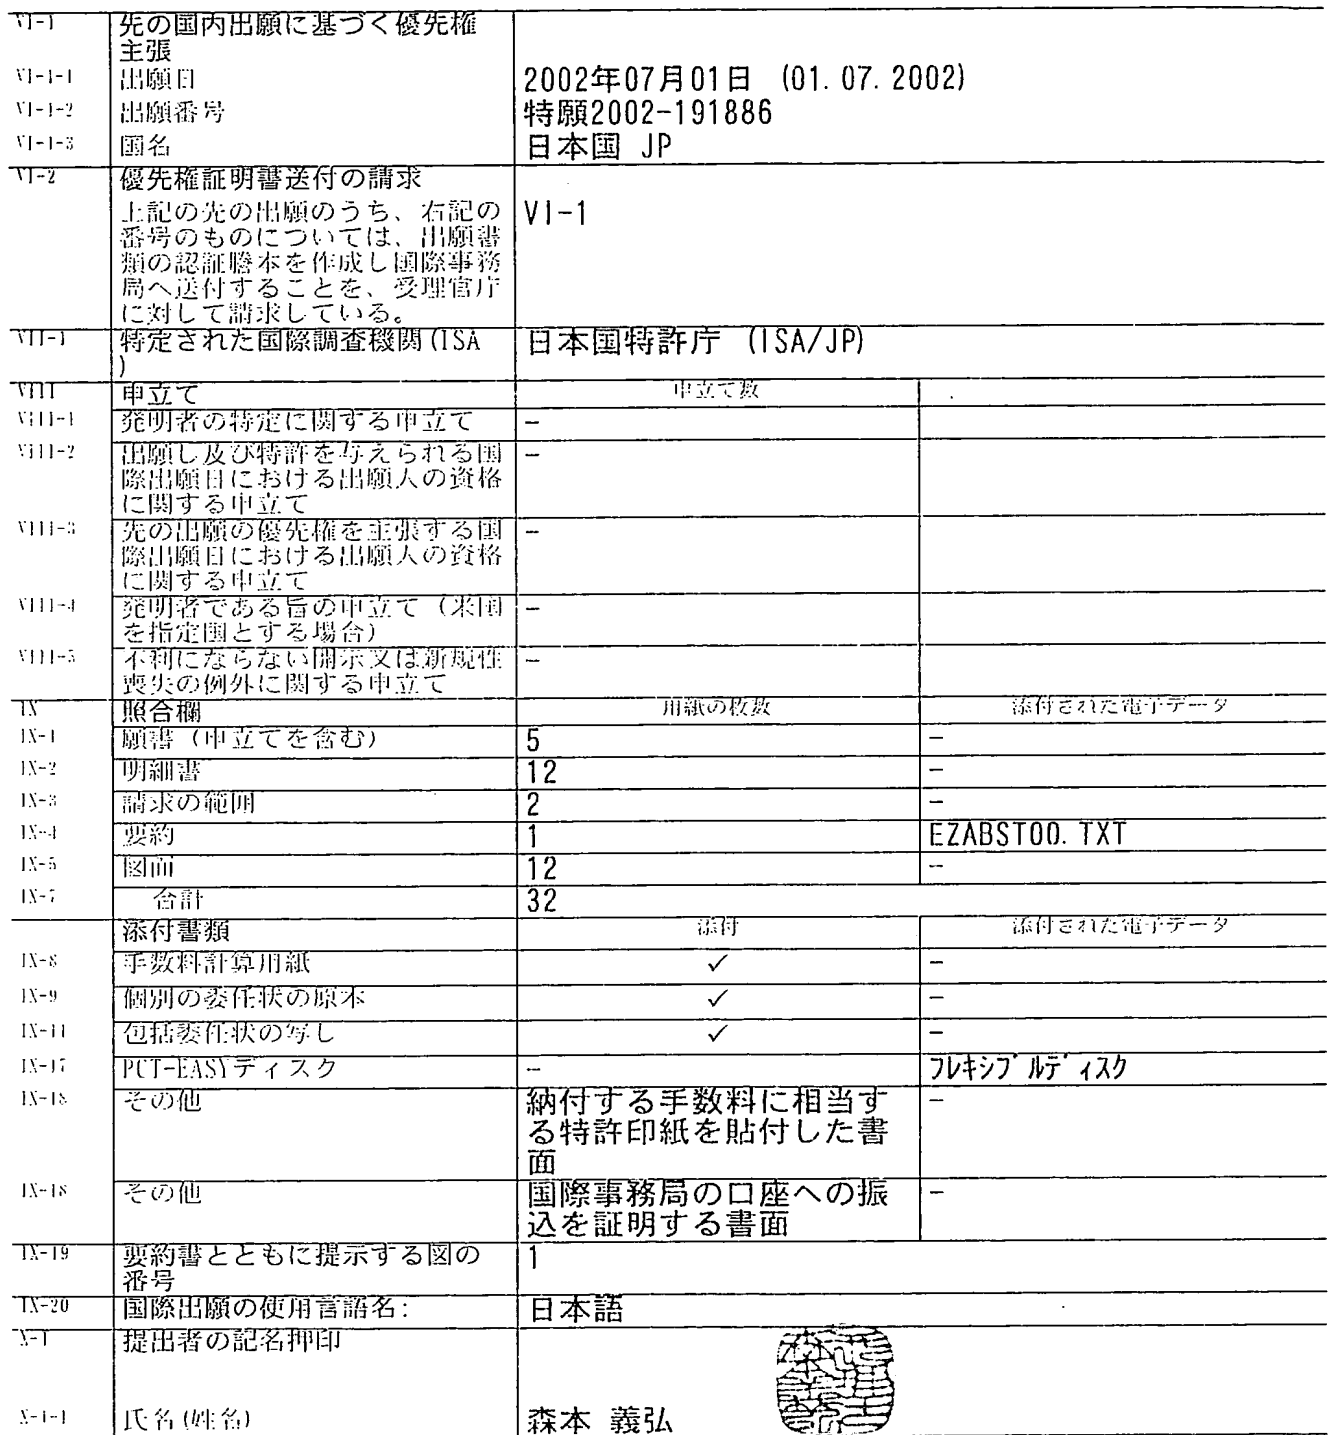 VI-1 先の国内出願に基づく優先権
主張
VI-1-1 出願日 2002年07月01日 (01.07.2002)
VI-1-2 出願番号 特願2002-191886
VI-1-3 国名 日本国 JP
VI-2 優先権証明書送付の請求
上記の先の出願のうち、右記の VI-1
番号のものについては、出願書
類の認証謄本を作成し国際事務
局へ送付することを、受理官庁
に対して請求している。
VII-1 特定された国際調査機関(ISA 日本国特許庁 (ISA/JP)
)
VIII 申立て 申立て数
VIII-1 発明者の特定に関する申立て -
VIII-2 出願し及び特許を与えられる国 -
際出願日における出願人の資格
に関する申立て
VIII-3 先の出願の優先権を主張する国 -
際出願日における出願人の資格
に関する申立て
VIII-4 発明者である旨の申立て（米国 -
を指定国とする場合）
VIII-5 不利にならない開示又は新規性 -
喪失の例外に関する申立て
IX 照合欄 用紙の枚数 添付された電子データ
IX-1 願書（申立てを含む） 5 -
IX-2 明細書 12 -
IX-3 請求の範囲 2 -
IX-4 要約 1 EZABST00.TXT
IX-5 図面 12 -
IX-7 合計 32
添付書類 添付 添付された電子データ
IX-8 手数料計算用紙 ✓ -
IX-9 個別の委任状の原本 ✓ -
IX-11 包括委任状の写し ✓ -
IX-17 PCT-EASYディスク - フレキシブルディスク
IX-18 その他 納付する手数料に相当す -
る特許印紙を貼付した書
面
IX-18 その他 国際事務局の口座への振 -
込を証明する書面
IX-19 要約書とともに提示する図の 1
番号
IX-20 国際出願の使用言語名: 日本語
X-1 提出者の記名押印
X-1-1 氏名(姓名) 森本 義弘